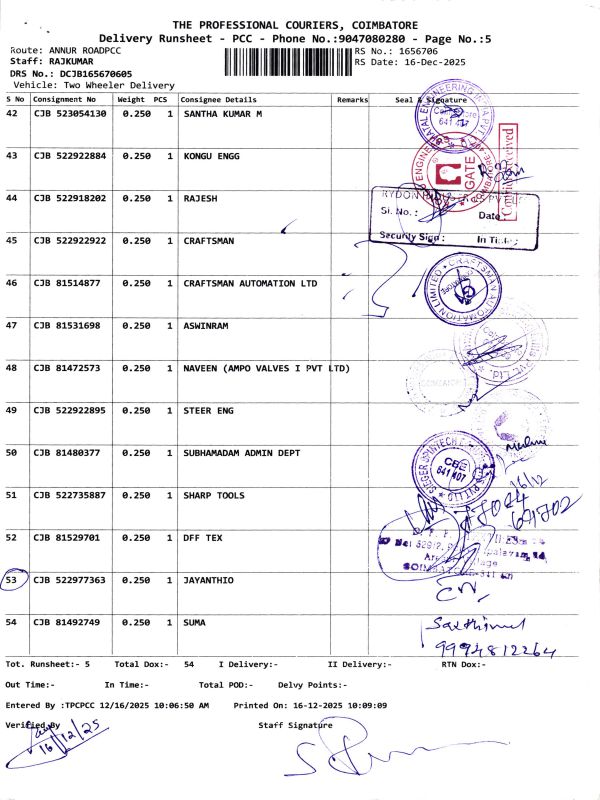 THE PROFESSIONAL COURIERS, COIMBATORE
Delivery Runsheet - PCC - Phone No.:9047080280 - Page No.:5
Route: ANNUR ROADPCC
RS No.: 1656706
Staff: RAJKUMAR
RS Date: 16-Dec-2025
DRS No.: DCJB165670605
Vehicle: Two Wheeler Delivery
S No Consignment No Weight PCS Consignee Details Remarks Seal & Signature
42 CJB 523054130 0.250 1 SANTHA KUMAR M
641 407
43 CJB 522922884 0.250 1 KONGU ENGG
GATE
44 CJB 522918202 0.250 1 RAJESH
Sl. No. : Date
Security Sign :
45 CJB 522922922 0.250 1 CRAFTSMAN
46 CJB 81514877 0.250 1 CRAFTSMAN AUTOMATION LTD
CRAFTSMAN AUTOMATION LIMITED
47 CJB 81531698 0.250 1 ASWINRAM
48 CJB 81472573 0.250 1 NAVEEN (AMPO VALVES I PVT LTD)
49 CJB 522922895 0.250 1 STEER ENG
50 CJB 81480377 0.250 1 SUBHAMADAM ADMIN DEPT
CBE
641 407
51 CJB 522735887 0.250 1 SHARP TOOLS
52 CJB 81529701 0.250 1 DFF TEX
53 CJB 522977363 0.250 1 JAYANTHIO
54 CJB 81492749 0.250 1 SUMA
9994812264
Tot. Runsheet:- 5 Total Dox:- 54 I Delivery:- II Delivery:- RTN Dox:-
Out Time:- In Time:- Total POD:- Delvy Points:-
Entered By :TPCPCC 12/16/2025 10:06:50 AM Printed On: 16-12-2025 10:09:09
Verified By Staff Signature
16/12/25